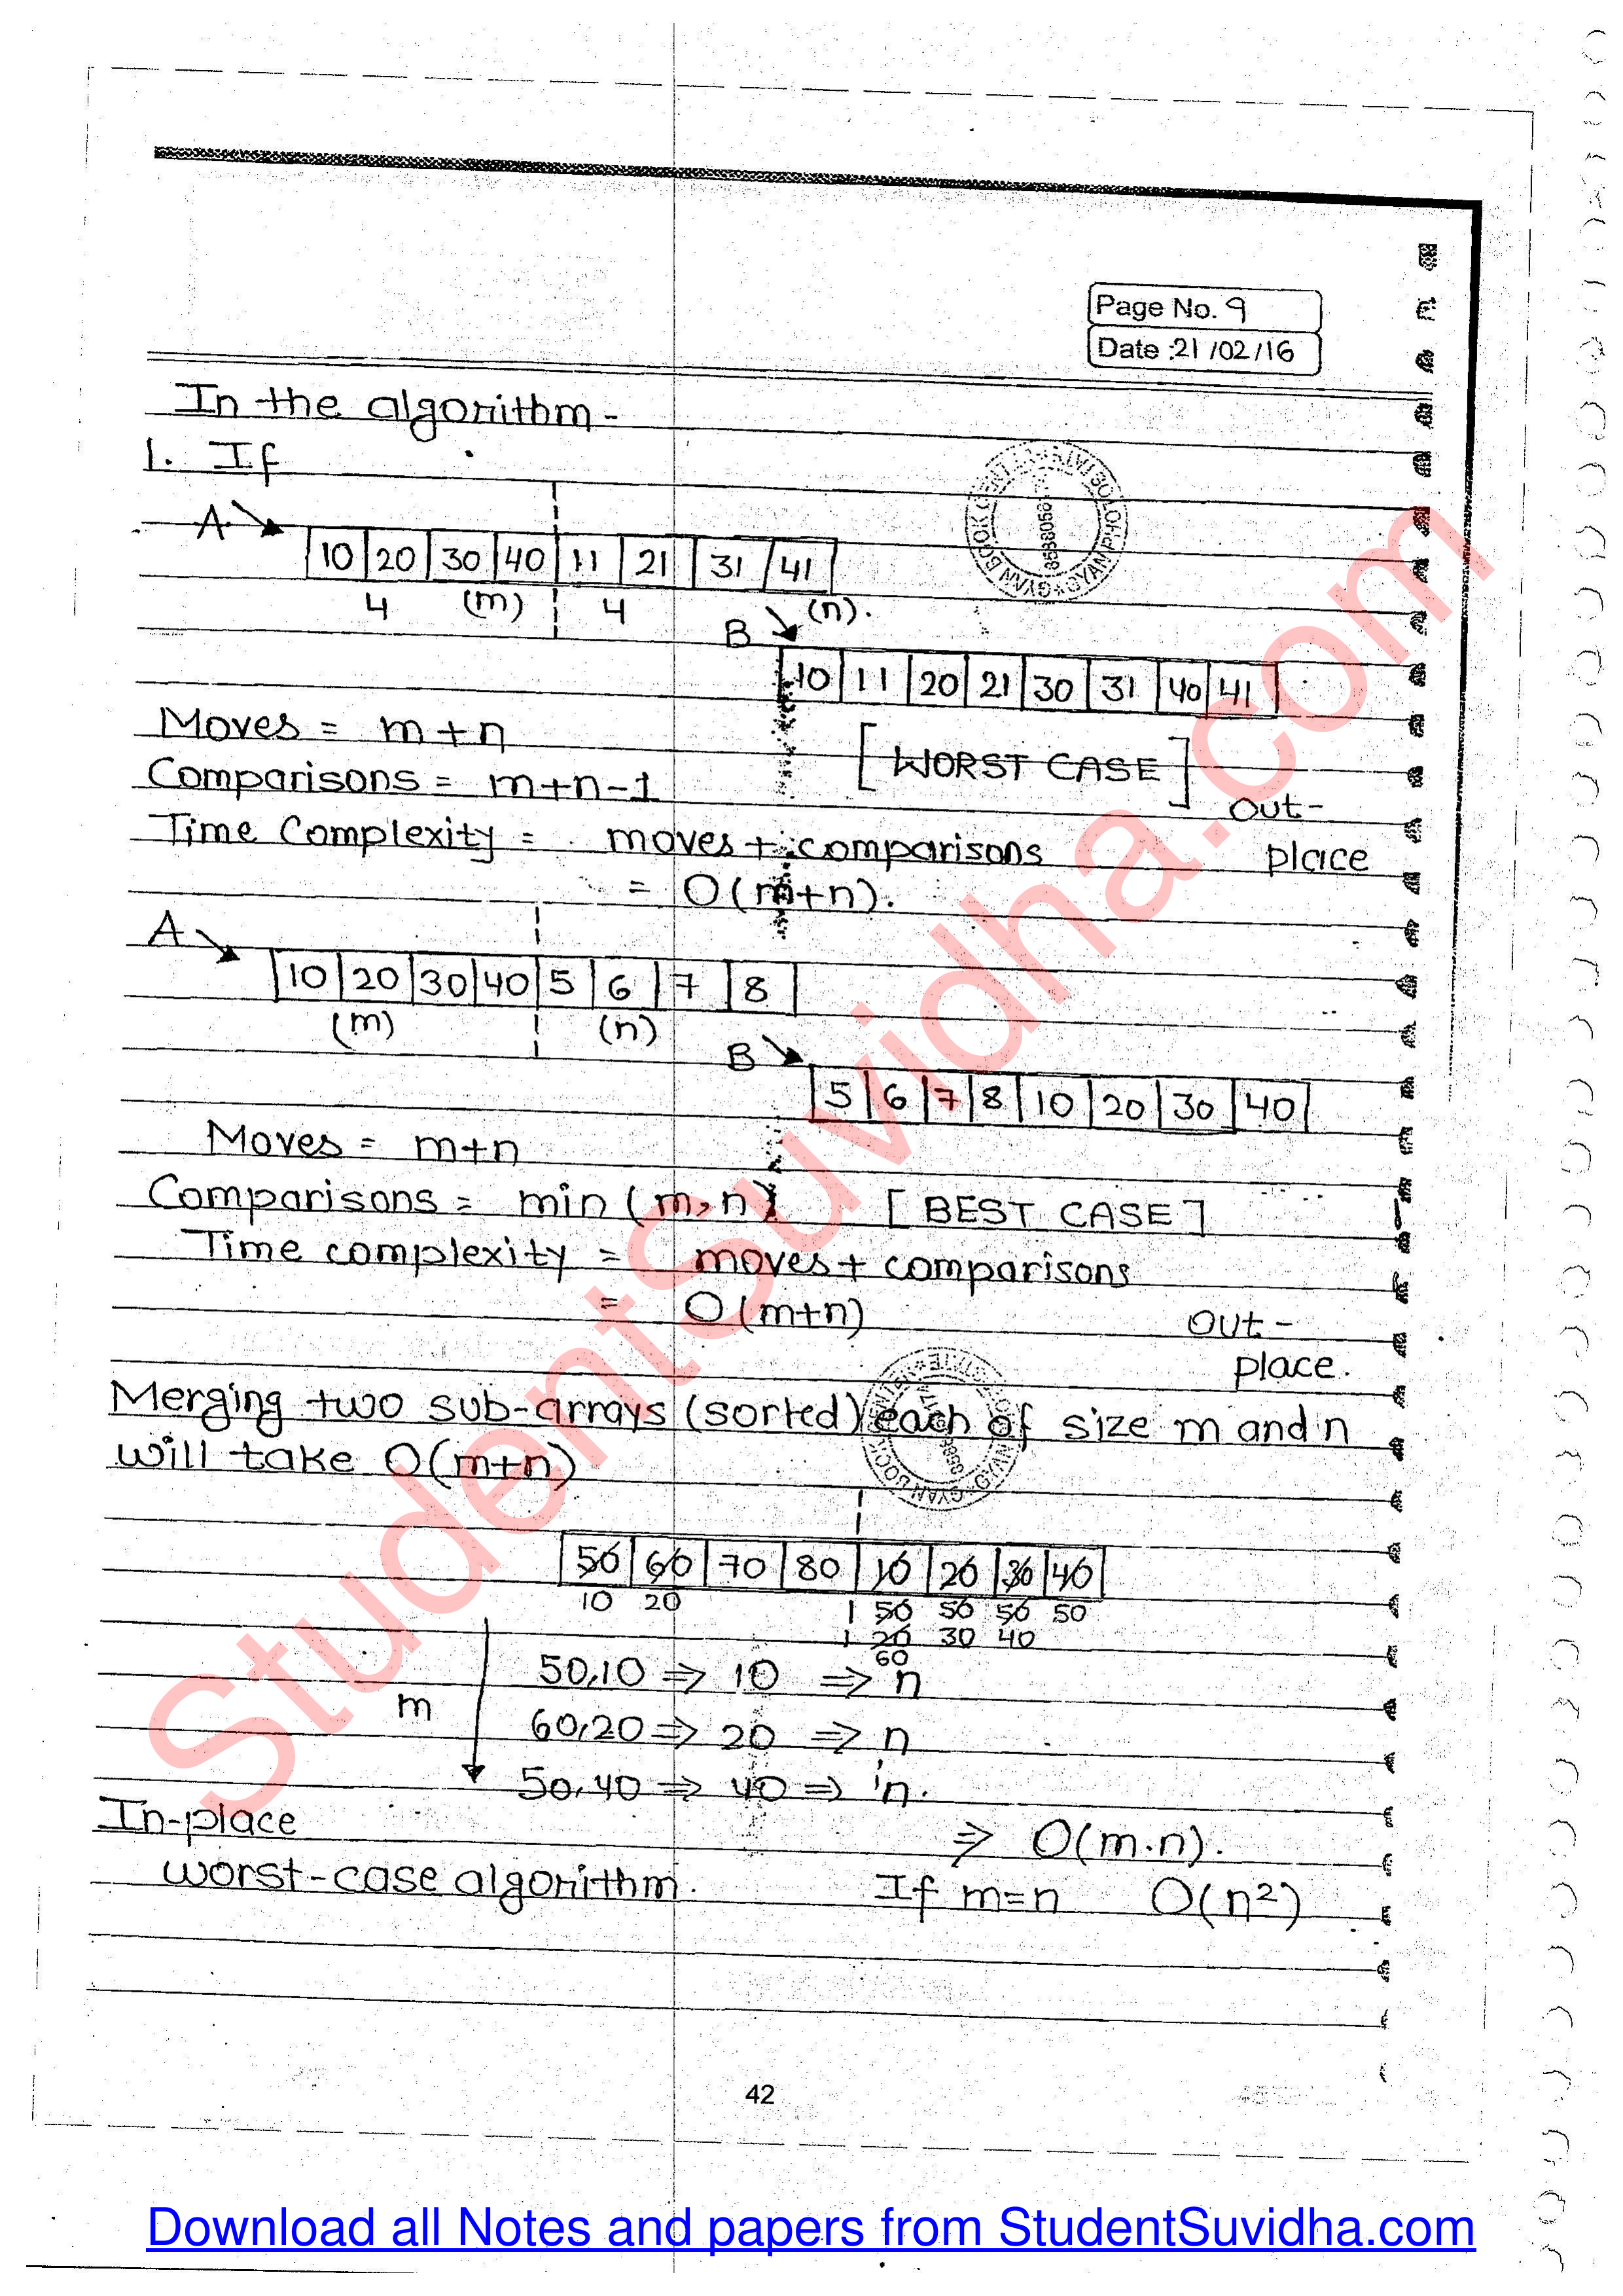 Page No. 9
Date :21/02/16
In the algorithm-
1. If
A
10 20 30 40 11 21 31 41
4 (m) 4 (n).
B
10 11 20 21 30 31 40 41
Moves = m+n
[WORST CASE]
Comparisons = m+n-1
Out-
Time Complexity = moves + comparisons place
= O(m+n).
A
10 20 30 40 5 6 7 8
(m) (n)
B
5 6 7 8 10 20 30 40
Moves = m+n
Comparisons = min (m,n) [BEST CASE]
Time complexity = moves + comparisons
= O(m+n)
Out-
place.
Merging two sub-arrays (sorted) each of size m and n
will take O(m+n)
50 60 70 80 10 20 30 40
10 20 50 50 50 50
20 30 40
60
50,10 ⇒ 10 ⇒ n
m
60,20 ⇒ 20 ⇒ n
50,40 ⇒ 40 ⇒ n.
In-place
⇒ O(m.n).
worst-case algorithm. If m=n O(n²)
42
StudentSuvidha.com
Download all Notes and papers from StudentSuvidha.com